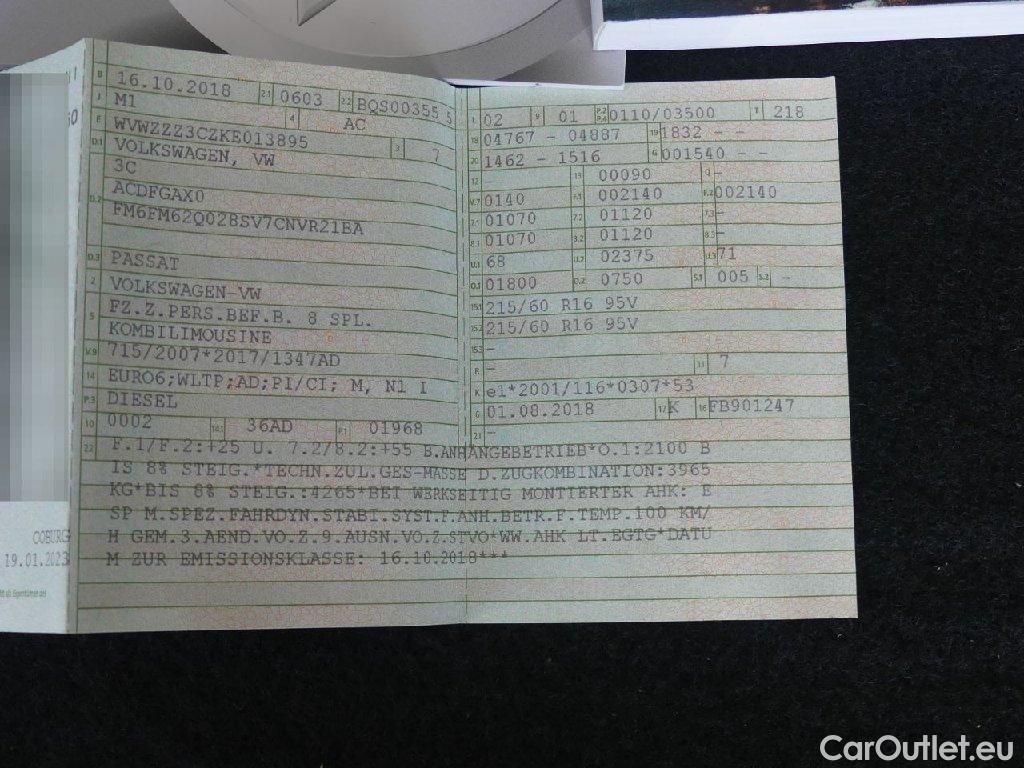 B 16.10.2018 2.1 0603 2.2 BQS00355 5
J M1 4 AC
E WVWZZZ3CZKE013895 3 7
D.1 VOLKSWAGEN, VW
3C
D.2 ACDFGAX0
FM6FM62Q028SV7CNVR21EA
D.3 PASSAT
2 VOLKSWAGEN-VW
5 FZ.Z.PERS.BEF.B. 8 SPL.
KOMBILIMOUSINE
V.9 715/2007*2017/1347AD
14 EURO6;WLTP;AD;PI/CI; M, N1 I
P.3 DIESEL
10 0002 14.1 36AD P.1 01968
L 02 9 01 P.2 P.4 0110/03500 T 218
18 04767 - 04887 19 1832 - -
20 1462 - 1516 G 001540 - -
12 13 00090 Q -
V.7 0140 F.1 002140 F.2 002140
7.1 01070 7.2 01120 7.3 -
8.1 01070 8.2 01120 8.3 -
U.1 68 U.2 02375 U.3 71
O.1 01800 O.2 0750 S.1 005 S.2 -
15.1 215/60 R16 95V
15.2 215/60 R16 95V
15.3 -
R - 11 7
K e1*2001/116*0307*53
6 01.08.2018 17 K 16 FB901247
21 -
22 F.1/F.2:+25 U. 7.2/8.2:+55 B.ANHÄNGEBETRIEB*O.1:2100 B
IS 8% STEIG.*TECHN.ZUL.GES-MASSE D.ZUGKOMBINATION:3965
KG*BIS 8% STEIG.:4265*BEI WERKSEITIG MONTIERTER AHK: E
SP M.SPEZ.FAHRDYN.STABI.SYST.F.ANH.BETR.F.TEMP.100 KM/
H GEM.3.AEND.VO.Z.9.AUSN.VO.Z.STVO*WW.AHK LT.EGTG*DATU
M ZUR EMISSIONSKLASSE: 16.10.2018***
COBURG
19.01.2023
CarOutlet.eu